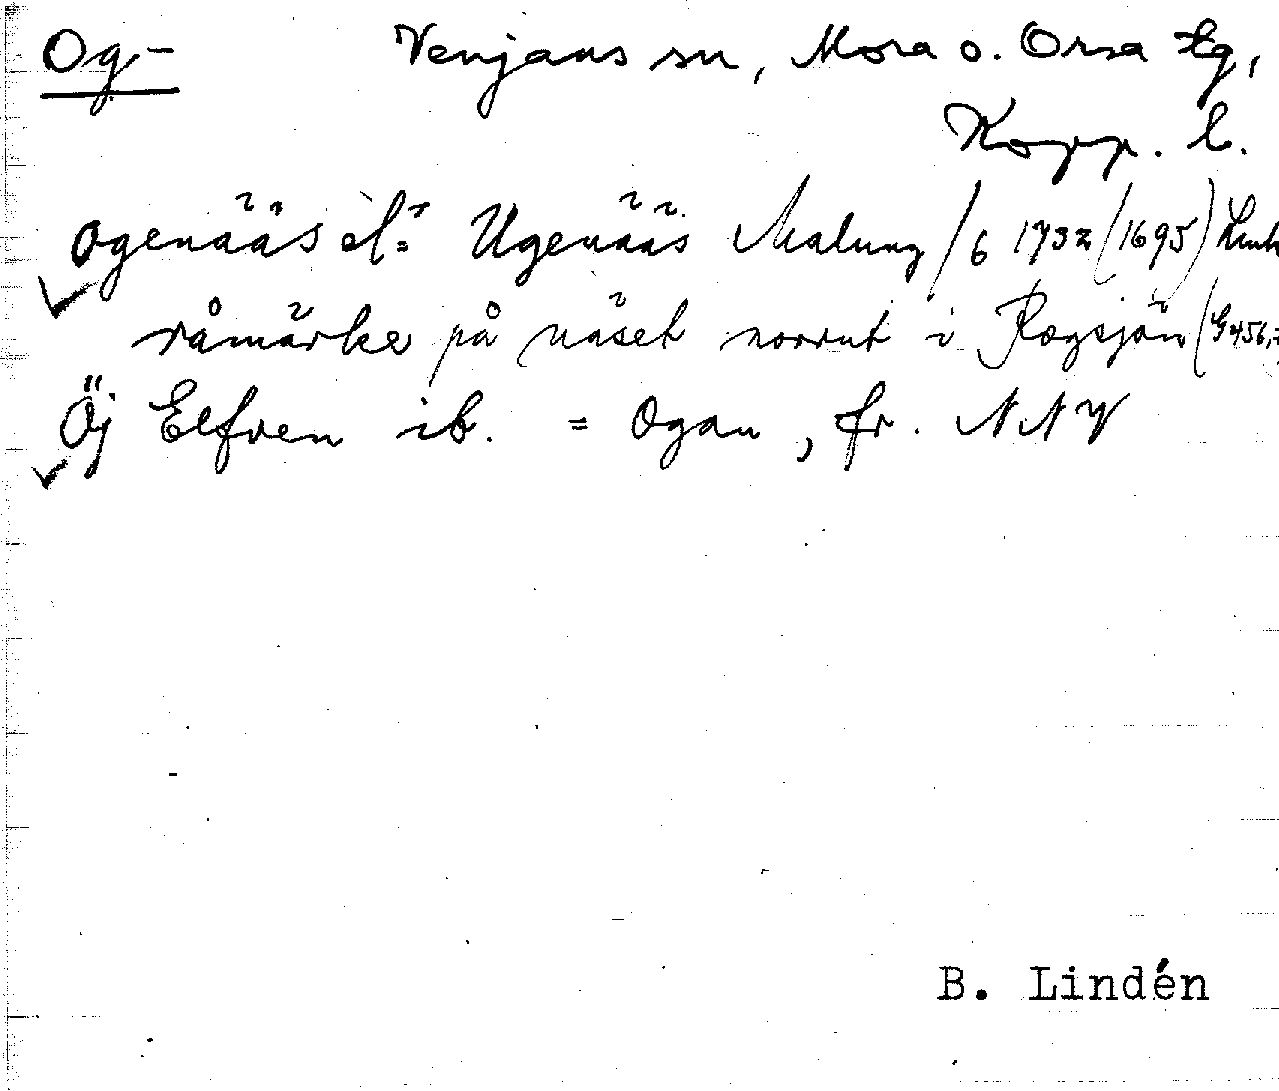 Og-
Venjans sn, Mora o. Orsa tg,
Kopp. l.
Ogenääs el: Ugenääs Malung /6 1732 (1695) Lmh
råmärke på näset norrut i Rogsjön (G 456,
Öj Elfven ib. = Ogan, fr. NNV
B. Lindén